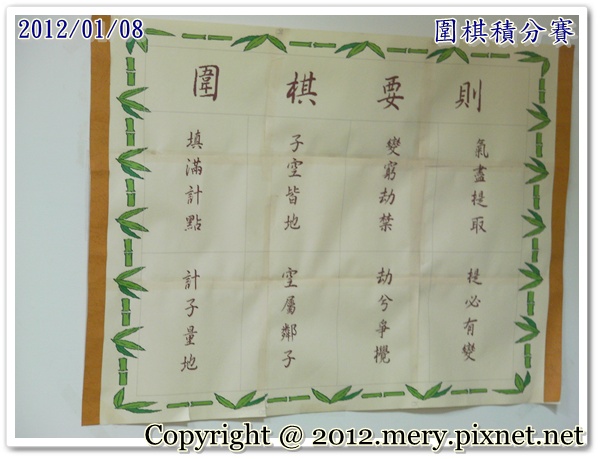 2012/01/08
圍棋積分賽
圍棋要則
氣盡提取 提必有變
變窮劫禁 劫兮爭攪
子空皆地 空屬鄰子
填滿計點 計子量地
Copyright @ 2012.mery.pixnet.net